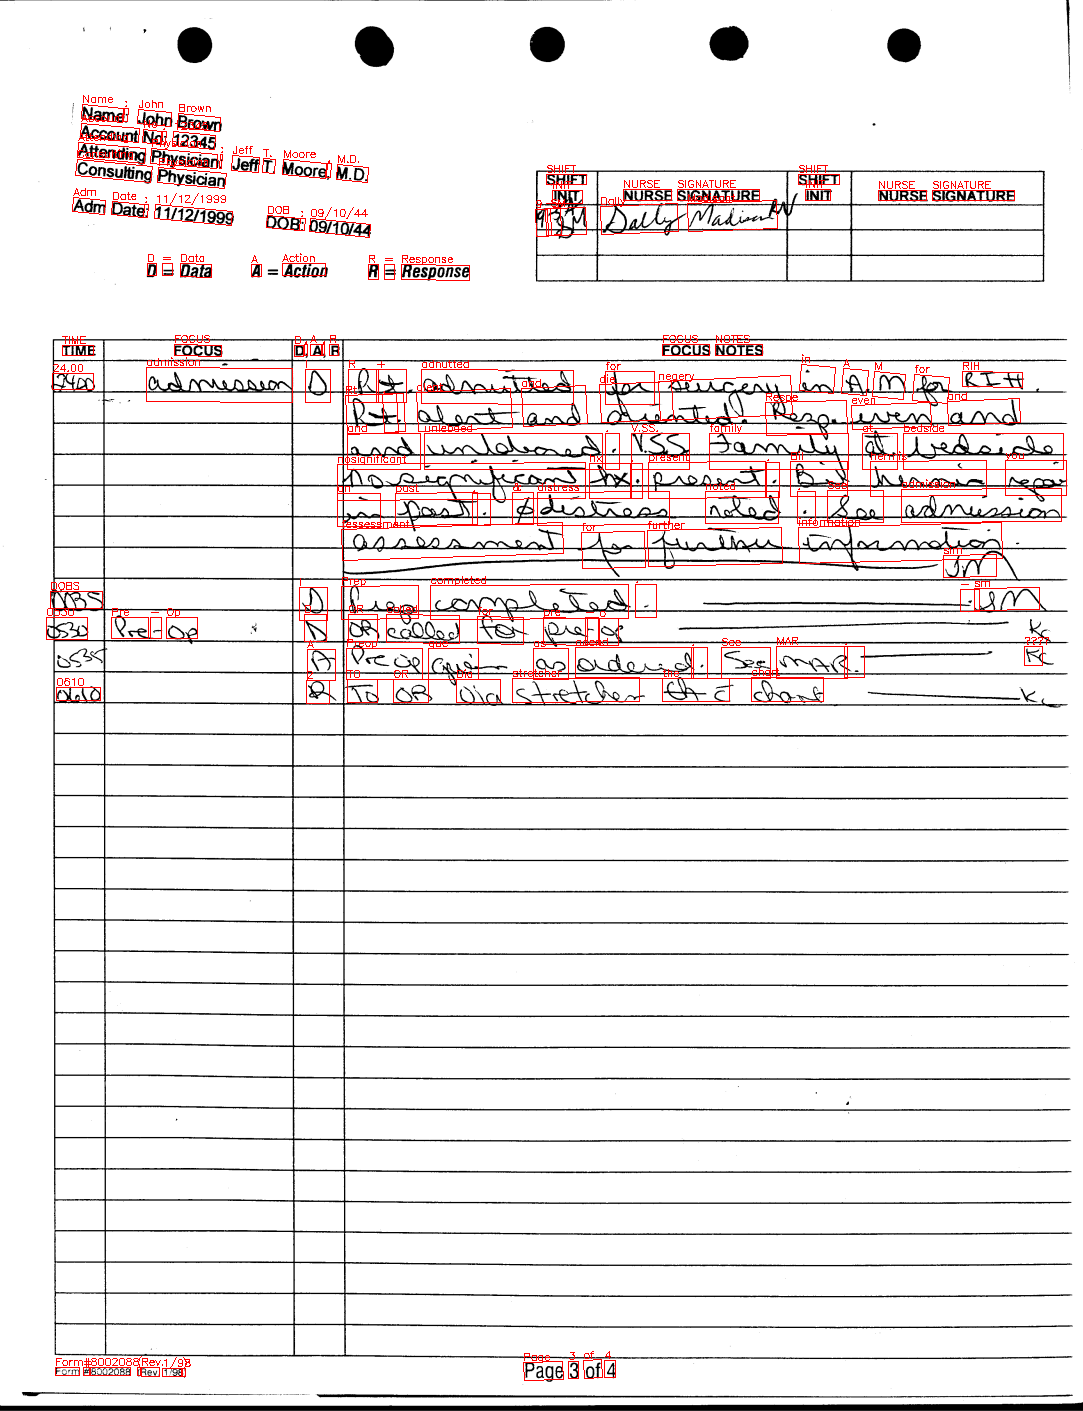 Name: John Brown
Account No: 12345
Attending Physician: Jeff T. Moore, M.D.
Consulting Physician
Adm Date: 11/12/1999 DOB: 09/10/44
D = Data A = Action R = Response
SHIFT INIT NURSE SIGNATURE SHIFT INIT NURSE SIGNATURE
Sally Madison RN
TIME FOCUS D, A, R FOCUS NOTES
2400 admission D Pt. admitted for surgery in A.M for RIH.
Pt. alert and oriented. Resp. even and
and unlabored. VSS Family at bedside
No significant hx. present. Bil hernia repair
in past. φ distress noted. See admission
assessment for further information. SM
D Prep completed. SM
0530 Pre-Op D OR called for pre-op Kc
0535 A Pre op given as ordered. See MAR. Kc
0610 R To OR via stretcher c̄ chart Kc
Form #8002088 (Rev. 1/98) Page 3 of 4